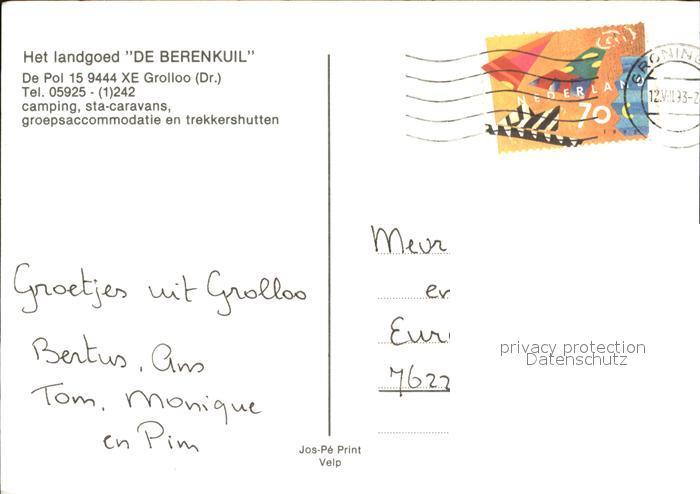 Het landgoed "DE BERENKUIL"
De Pol 15 9444 XE Grolloo (Dr.)
Tel. 05925 - (1)242
camping, sta-caravans,
groepsaccommodatie en trekkershutten
NEDERLAND
70
GRONING
Groetjes uit Grolloo
Bertus, Ans
Tom, Monique
en Pim
Mevr
en
Eur
7622
privacy protection
Datenschutz
Jos-Pé Print
Velp